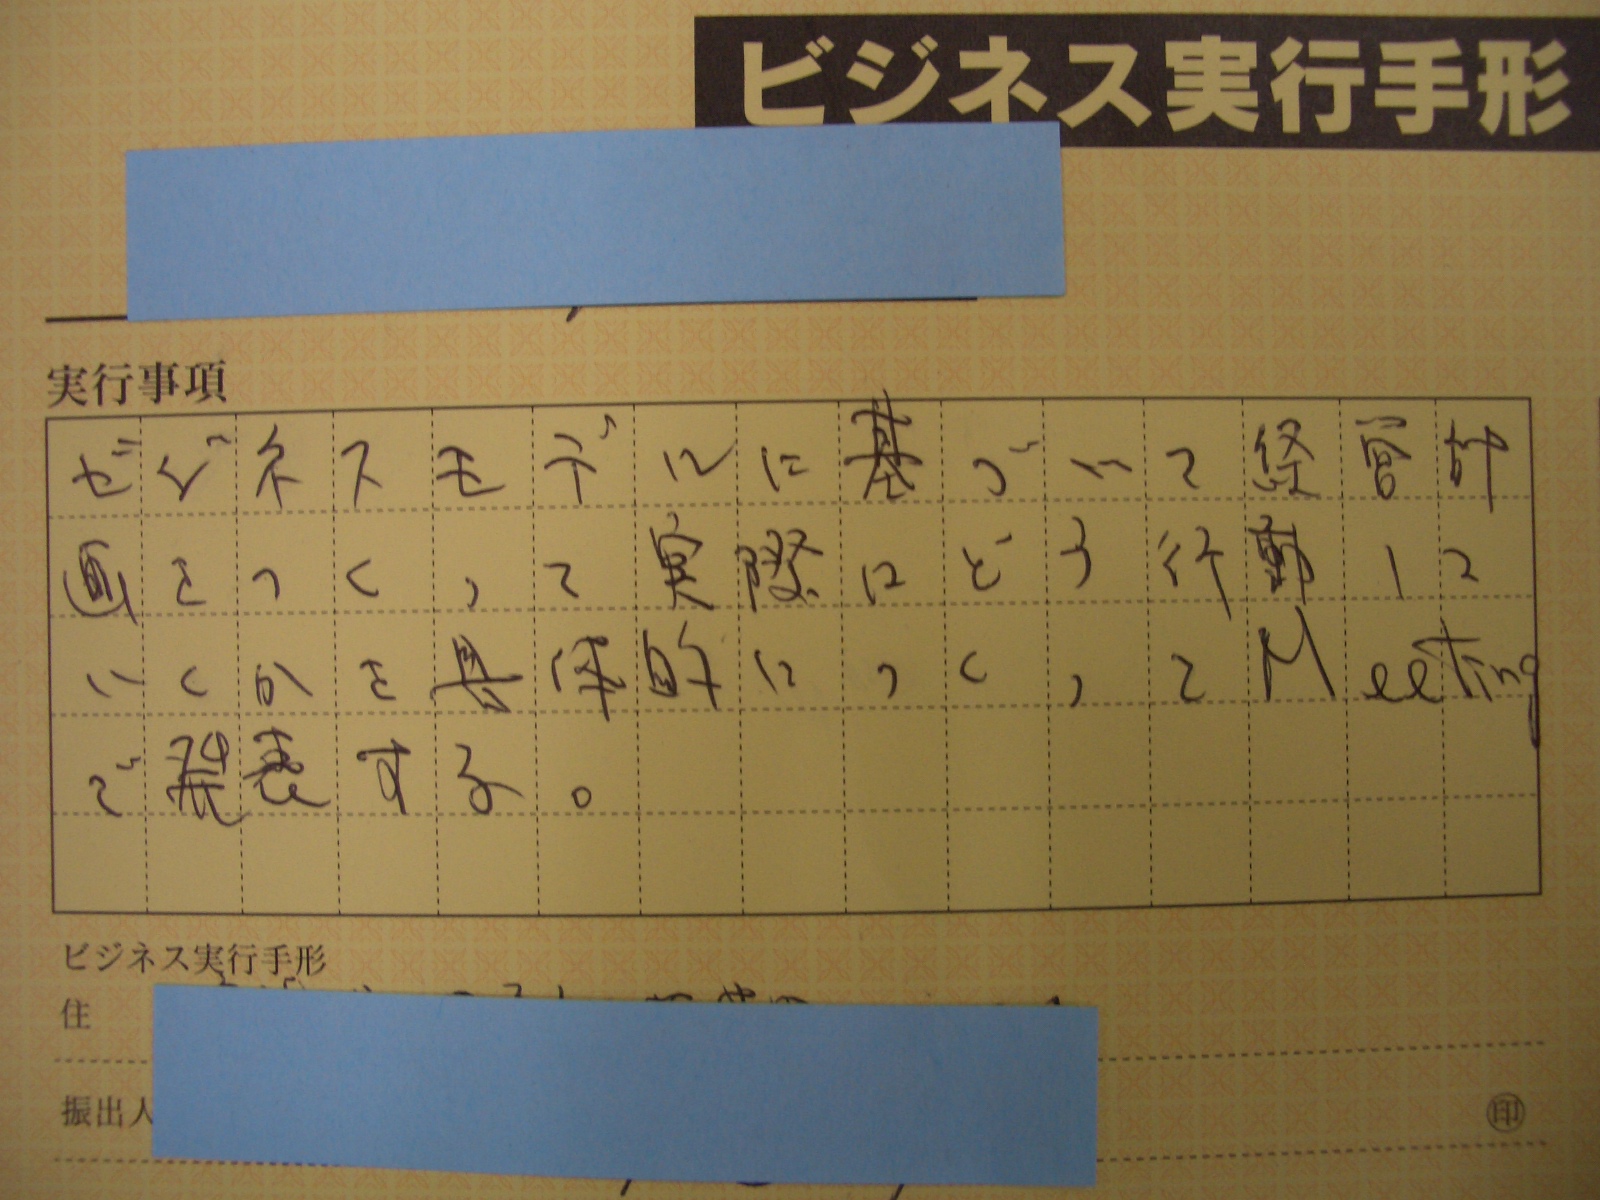 ビジネス実行手形
実行事項
ビジネスモデルに基づいて経営計
画をつくって実際にどう行動して
いくかを具体的につくってMeeting
で発表する。
ビジネス実行手形
住
振出人
印